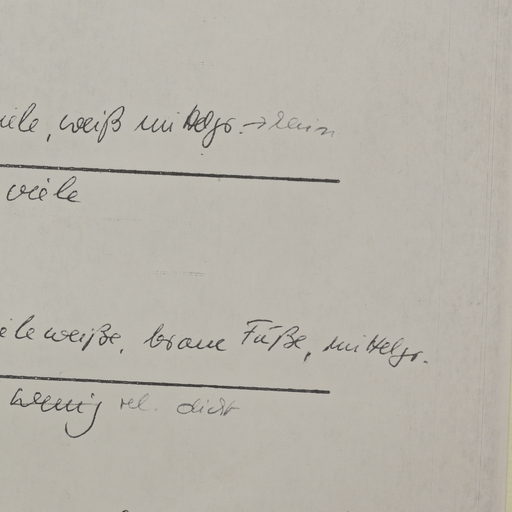 viele, weiß mittelgr. → klein
viele
viele weiße, braune Füße, mittelgr.
wenig rel. dicht